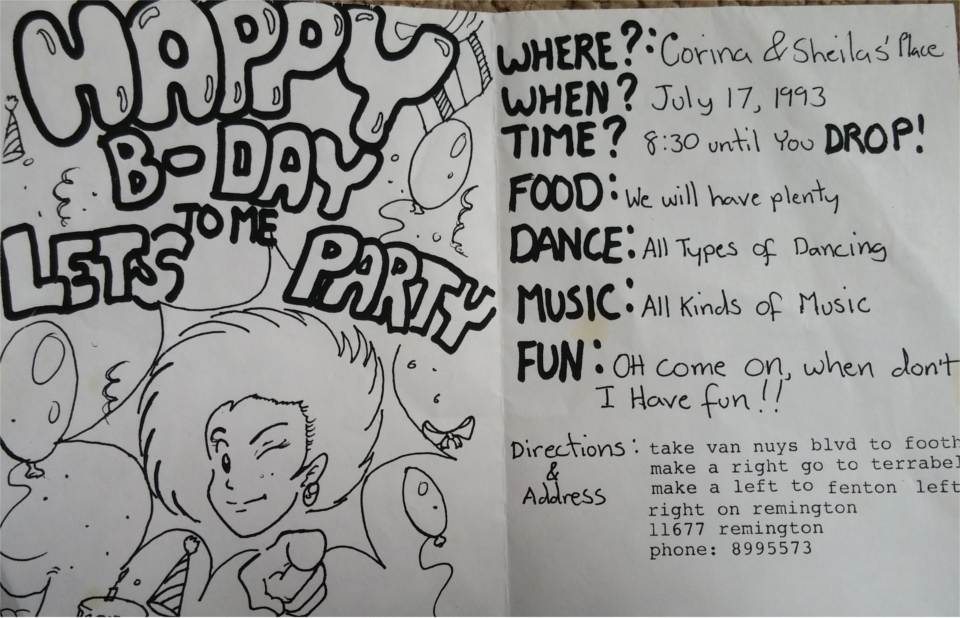 HAPPY
B-DAY
TO ME
LETS PARTY
WHERE?: Corina & Sheilas' Place
WHEN? July 17, 1993
TIME? 8:30 until You DROP!
FOOD: We will have plenty
DANCE: All Types of Dancing
MUSIC: All Kinds of Music
FUN: OH come on, when don't
I Have fun!!
Directions: take van nuys blvd to footh
& make a right go to terrabel
Address make a left to fenton left
right on remington
11677 remington
phone: 8995573